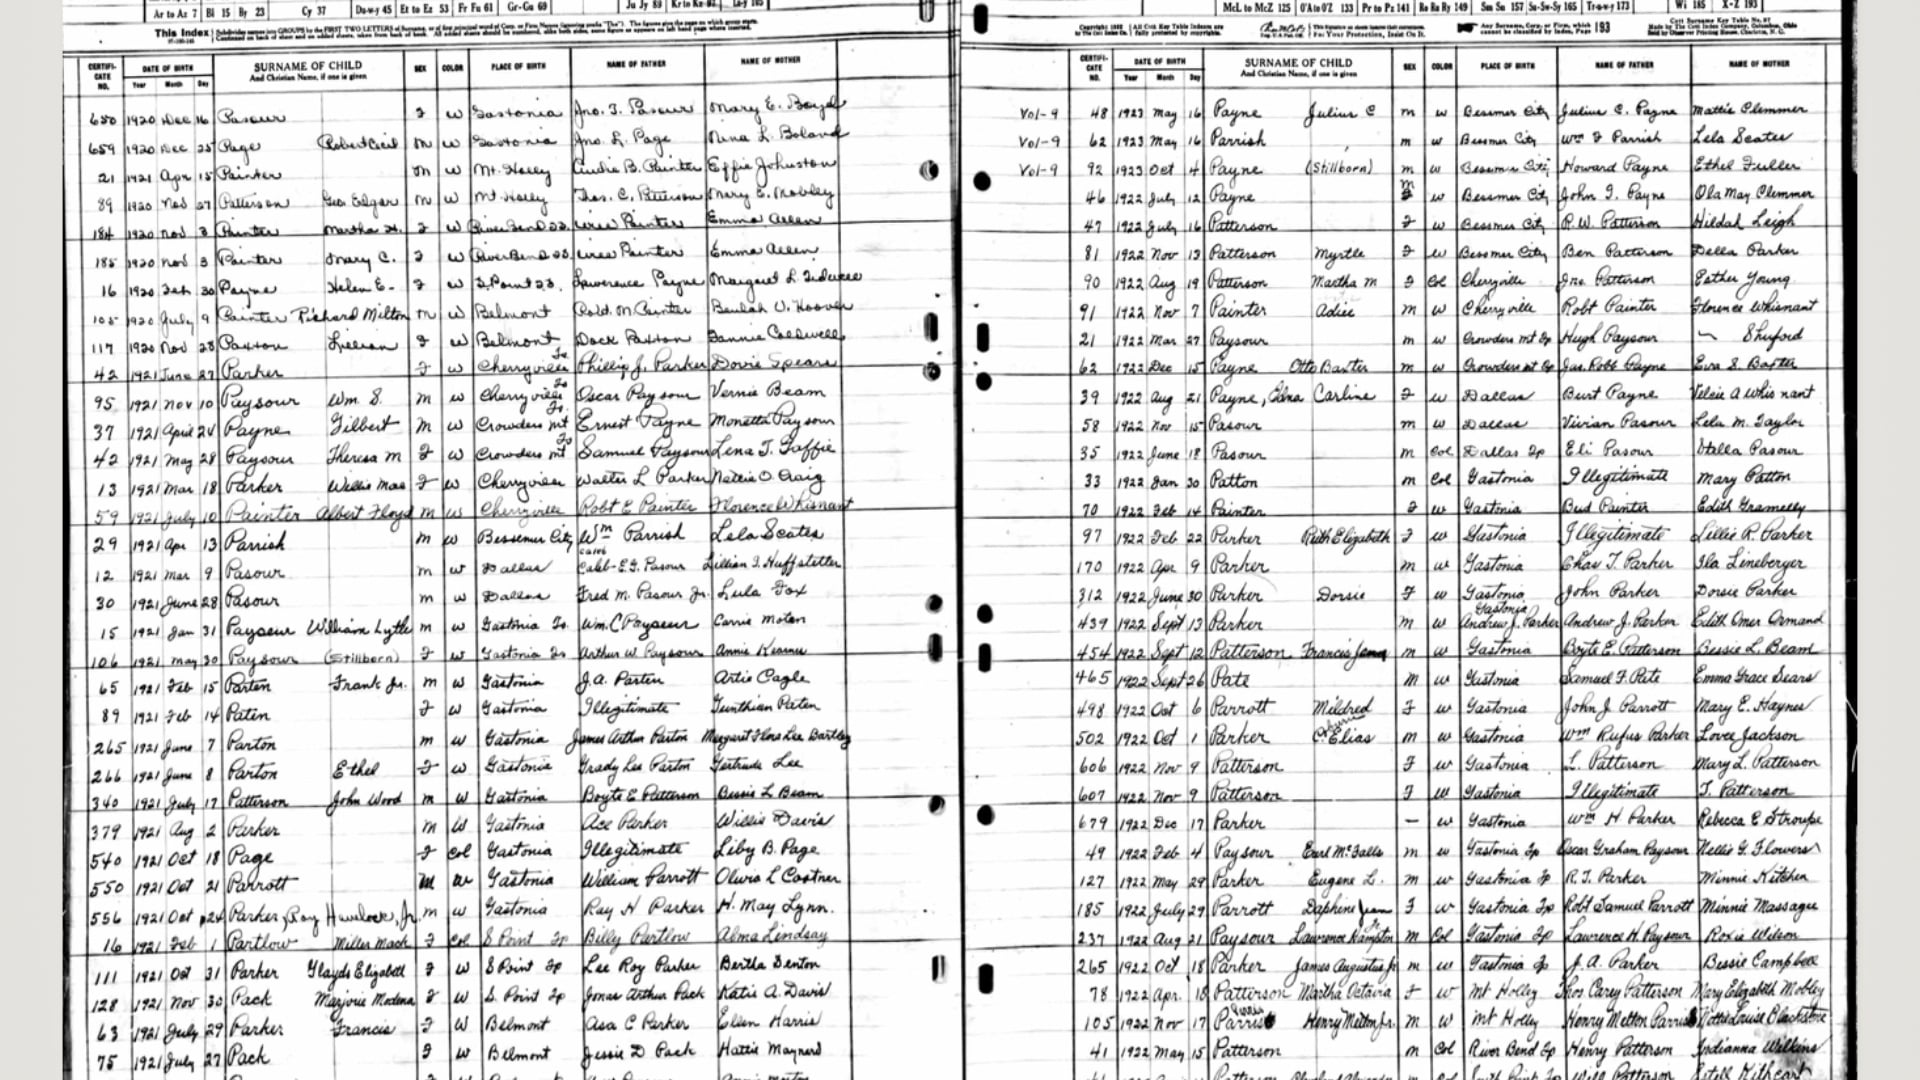 Ar to Az 7 Bl 15 By 23 Cy 37 Da-w-y 45 Et to Ez 53 Fr Fu 61 Gr-Gu 69 Ju Jy 89 Kr to Kz La-y 105
This Index
CERTIFICATE NO. DATE OF BIRTH Year Month Day SURNAME OF CHILD And Christian Name, if one is given SEX COLOR PLACE OF BIRTH NAME OF FATHER NAME OF MOTHER
650 1920 Dec 16 Pasour F W Gastonia Jno. F. Pasour Mary E. Boyd
659 1920 Dec 25 Page Robert Cecil M W Gastonia Jno. L. Page Nina L. Boland
21 1921 Apr 15 Painter M W Mt. Holly Audie B. Painter Effie Johnston
89 1920 Nov 27 Patterson Geo. Edgar M W Mt Holly Thos. C. Patterson Mary E. Mobley
184 1920 Nov 3 Painter Martha H. F W River Bend Painter Emma Allen
185 1920 Nov 3 Painter Mary C. F W River Bend Painter Emma Allen
16 1920 Feb 30 Payne Helen E. F W S. Point Lawrence Payne Margaret L.
105 1920 July 9 Painter Richard Milton M W Belmont Robt. M. Painter Beulah V. Hoover
117 1920 Nov 28 Paxton Lillian F W Belmont Dock Paxton Fannie Caldwell
42 1921 June 27 Parker F W Cherryville To Phillip J. Parker Dovie Spears
95 1921 Nov 10 Paysour Wm. S. M W Cherryville To Oscar Paysour Vernie Beam
37 1921 April 24 Payne Gilbert M W Crowders Mt To Ernest Payne Monetta Paysour
42 1921 May 28 Paysour Theresa M F W Crowders Mt To Samuel Paysour Lena T. Gaffie
13 1921 Mar 18 Parker Willie Mae F W Cherryville Walter L Parker Nettie O Craig
59 1921 July 10 Painter Albert Floyd M W Cherryville Robt E Painter Florence Whisnant
29 1921 Apr 13 Parrish M W Bessemer City Wm Parrish Lela Scates
12 1921 Mar 9 Pasour M W Dallas Caleb E.G. Pasour Lillian I. Huffstetler
30 1921 June 28 Pasour M W Dallas Fred M. Pasour Jr. Lula Fox
15 1921 Jan 31 Payseur William Lytle M W Gastonia To. Wm. C Payseur Carrie Moton
106 1921 May 30 Paysour (Stillborn) F W Gastonia To Arthur W. Paysour Annie Kearns
65 1921 Feb 15 Parten Frank Jr. M W Gastonia J.A. Parten Artie Cagle
89 1921 Feb 14 Paten F W Gastonia Illegitimate Gunthian Paten
265 1921 June 7 Parton M W Gastonia James Arthur Parton Margaret Flora Lee Bartley
266 1921 June 8 Parton Ethel F W Gastonia Grady Lee Parton Gertrude Lee
340 1921 July 17 Patterson John Wood M W Gastonia Boyte E Patterson Bessie L Beam
379 1921 Aug 2 Parker M W Gastonia Ace Parker Willie Davis
540 1921 Oct 18 Page F Col Gastonia Illegitimate Liby B. Page
550 1921 Oct 21 Parrott M W Gastonia William Parrott Olivia L Costner
556 1921 Oct 24 Parker, Ray Havelock, Jr. M W Gastonia Ray H Parker H. May Lynn.
16 1921 Feb 1 Partlow Miller Mack F Col S Point Tp Billy Partlow Alma Lindsay
111 1921 Oct 31 Parker Glayds Elizabeth F W S Point Tp Lee Roy Parker Bertha Denton
128 1921 Nov 30 Pack Marjorie Modena F W S. Point Tp Jonas Arthur Pack Katie A. Davis
63 1921 July 29 Parker Francis F W Belmont Asa C Parker Ellen Harris
75 1921 July 27 Pack F W Belmont Jessie D Pack Hattie Maynerd
McL to McZ 125 O'A to O'Z 133 Pr to Pz 141 Ro Ra Ry 149 Sen Su 157 Su-Sw-Sy 165 Tr-u-w-y 173 Wi 185 X-Z 193
CERTIFICATE NO. DATE OF BIRTH Year Month Day SURNAME OF CHILD And Christian Name, if one is given SEX COLOR PLACE OF BIRTH NAME OF FATHER NAME OF MOTHER
Vol-9 48 1923 May 16 Payne Julius C M W Bessmer City Julius C. Payne Mattie Clemmer
Vol-9 62 1923 May 16 Parrish M W Bessmer City Wm F Parrish Lela Scates
Vol-9 92 1923 Oct 4 Payne (Stillborn) M W Bessmer City Howard Payne Ethel Fuller
46 1922 July 12 Payne M W Bessmer City John I. Payne Ola May Clemmer
47 1922 July 16 Patterson F W Bessmer City R.W. Patterson Hildah Leigh
81 1922 Nov 13 Patterson Myrtle F W Bessmer City Ben Patterson Della Parker
90 1922 Aug 19 Patterson Martha M F Col Cherryville Jno. Patterson Esther Young
91 1922 Nov 7 Painter Adiee M W Cherryville Robt Painter Florence Whisnant
21 1922 Mar 27 Paysour M W Crowders Mt Tp Hugh Paysour — Shuford
62 1922 Dec 15 Payne Otto Baxter M W Crowders Mt Tp Jas. Robt Payne Eva S. Baxter
39 1922 Aug 21 Payne, Edna Carline F W Dallas Burt Payne Velcie A Whisnant
58 1922 Nov 15 Pasour M W Dallas Vivian Pasour Lela M. Taylor
35 1922 June 18 Pasour M Col Dallas Tp Eli Pasour Stella Pasour
33 1922 Jan 30 Patton M Col Gastonia Illegitimate Mary Patton
70 1922 Feb 14 Painter F W Gastonia Bud Painter Edith Gramelly
97 1922 Feb 22 Parker Ruth Elizabeth F W Gastonia Illegitimate Lillie R. Parker
170 1922 Apr 9 Parker M W Gastonia Chas T. Parker Ila Lineberger
312 1922 June 30 Parker Dorsie F W Gastonia John Parker Dorsie Parker
439 1922 Sept 13 Parker M W Gastonia Andrew J. Parker Andrew J. Parker Edith Omer Ormand
454 1922 Sept 12 Patterson Francis James M W Gastonia Boyte E. Patterson Bessie L. Beam
465 1922 Sept 26 Pate M W Gastonia Samuel F. Pate Emma Grace Sears
498 1922 Oct 6 Parrott Mildred F W Gastonia John J Parrott Mary E. Haynes
502 1922 Oct 1 Parker Elias M W Gastonia Wm Rufus Parker Lovee Jackson
606 1922 Nov 9 Patterson F W Gastonia L. Patterson Mary L. Patterson
607 1922 Nov 9 Patterson F W Gastonia Illegitimate T. Patterson
679 1922 Dec 17 Parker — W Gastonia Wm H Parker Rebecca E Stroupe
49 1922 Feb 4 Paysour Earl McFalls M W Gastonia Tp Oscar Graham Paysour Nellie G. Flowers
127 1922 May 29 Parker Eugene L. M W Gastonia Tp R.T. Parker Minnie Kitchen
185 1922 July 29 Parrott Daphine Jean F W Gastonia Tp Robt Samuel Parrott Minnie Massagee
237 1922 Aug 21 Paysour Lawrence Hampton Jr. M Col Gastonia Tp Lawrence H. Paysour Roxie Wilson
265 1922 Oct 18 Parker James Augustus Jr M W Gastonia Tp J.A. Parker Bessie Campbell
78 1922 Apr. 18 Patterson Martha Octavia F W Mt Holly Thos Carey Patterson Mary Elizabeth Mobley
105 1922 Nov 17 Parris Henry Melton Jr. M W Mt Holly Henry Melton Parris Nottie Louise Blackstone
41 1922 May 15 Patterson M Col River Bend Tp Henry Patterson Indianna Wilkins